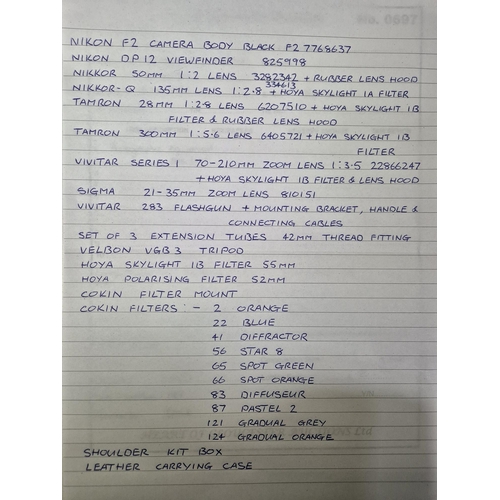 NIKON F2 CAMERA BODY BLACK F2 7768637
NIKON DP12 VIEWFINDER 825998
NIKKOR 50MM 1:2 LENS 3282342 + RUBBER LENS HOOD
334613
NIKKOR-Q 135MM LENS 1:2.8 + HOYA SKYLIGHT 1A FILTER
TAMRON 28MM 1:2.8 LENS 6207510 + HOYA SKYLIGHT 1B
FILTER & RUBBER LENS HOOD
TAMRON 300MM 1:5.6 LENS 6405721 + HOYA SKYLIGHT 1B
FILTER
VIVITAR SERIES 1 70-210MM ZOOM LENS 1:3.5 22866247
+ HOYA SKYLIGHT 1B FILTER & LENS HOOD
SIGMA 21-35MM ZOOM LENS 810151
VIVITAR 283 FLASHGUN + MOUNTING BRACKET, HANDLE &
CONNECTING CABLES
SET OF 3 EXTENSION TUBES 42MM THREAD FITTING
VELBON VGB3 TRIPOD
HOYA SKYLIGHT 1B FILTER 55MM
HOYA POLARISING FILTER 52MM
COKIN FILTER MOUNT
COKIN FILTERS:- 2 ORANGE
22 BLUE
41 DIFFRACTOR
56 STAR 8
65 SPOT GREEN
66 SPOT ORANGE
83 DIFFUSEUR
87 PASTEL 2
121 GRADUAL GREY
124 GRADUAL ORANGE
SHOULDER KIT BOX
LEATHER CARRYING CASE